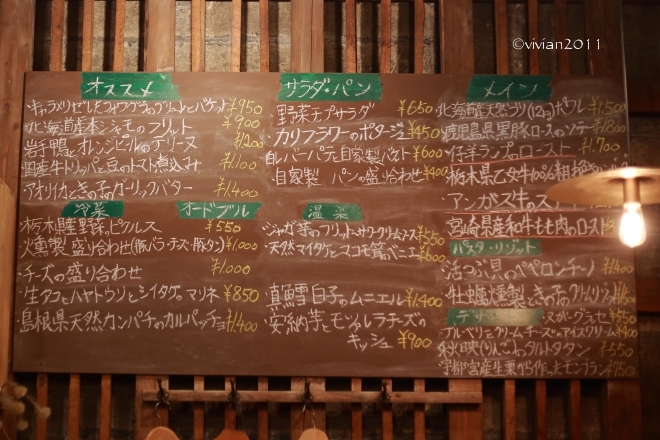 ©vivian2011
オススメ
キャラメリゼしたフォワグラのグリーンとバゲット ¥950
北海道産本シャモのフリット ¥900
岩鴨とオレンジピールのテリーヌ ¥1200
国産牛トリッパと豆のトマト煮込み ¥1,100
アオリイカときの子のガーリックバター ¥1,400
冷菜 オードブル
栃木県産野菜のピクルス ¥550
火薫製 盛り合わせ(豚バラ・チーズ・豚タン) ¥1,000
チーズの盛り合わせ ¥1,000
生タコとハヤトウリとシイタケのマリネ ¥850
島根県天然カンパチのカルパッチョ ¥1,400
サラダ・パン
野菜チップサラダ ¥650
カリフラワーのポタージュ ¥450
白レバーパテと自家製バケット ¥600
自家製 パンの盛り合わせ ¥400
温菜
ジャガ芋のフリットサワークリームアエ ¥550
天然マイタケとマコモ茸のバニエ ¥600
真鱈白子のムニエル ¥1,400
安納芋とモッツァレラチーズの
キッシュ ¥900
メイン
北海道産天然ブリ(12kg)のポワレ ¥1,500
鹿児島県黒豚ロースのソテー ¥1800
仔羊ランプのロースト ¥1,700
栃木県乙女牛100%粗挽き
アンガス牛のス
宮崎県産和牛もも肉のロースト
パスタ・リゾット
活つぶ貝のペペロンチーノ ¥1400
牡蠣燻製ときの子のクリームリゾット
デザ
ガトーグラッセ ¥550
ブルーベリーとクリームチーズのアイスクリーム ¥400
秋映(りんご)のタルトタタン ¥550
宇都宮産生栗から作ったモンブラン ¥750